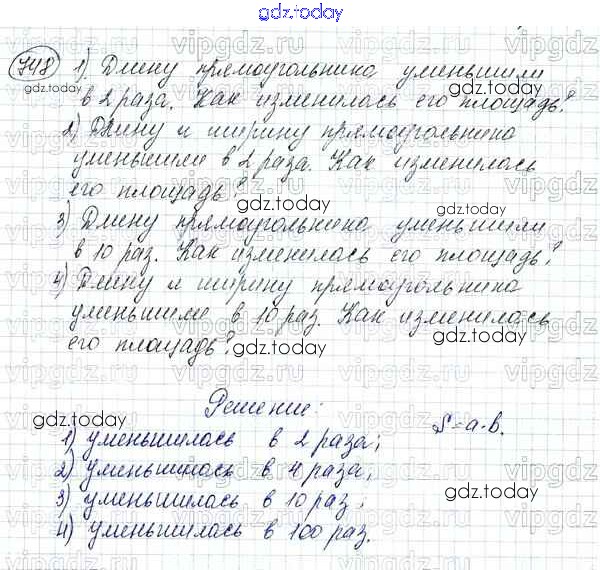 gdz.today
748 1) Длину прямоугольника уменьшили
в 2 раза. Как изменилась его площадь?
2) Длину и ширину прямоугольника
уменьшили в 2 раза. Как изменилась
его площадь?
3) Длину прямоугольника уменьшили
в 10 раз. Как изменилась его площадь?
4) Длину и ширину прямоугольника
уменьшили в 10 раз. Как изменилась
его площадь?
Решение:
1) уменьшилась в 2 раза; S=a·b.
2) уменьшилась в 4 раза;
3) уменьшилась в 10 раз;
4) уменьшилась в 100 раз.